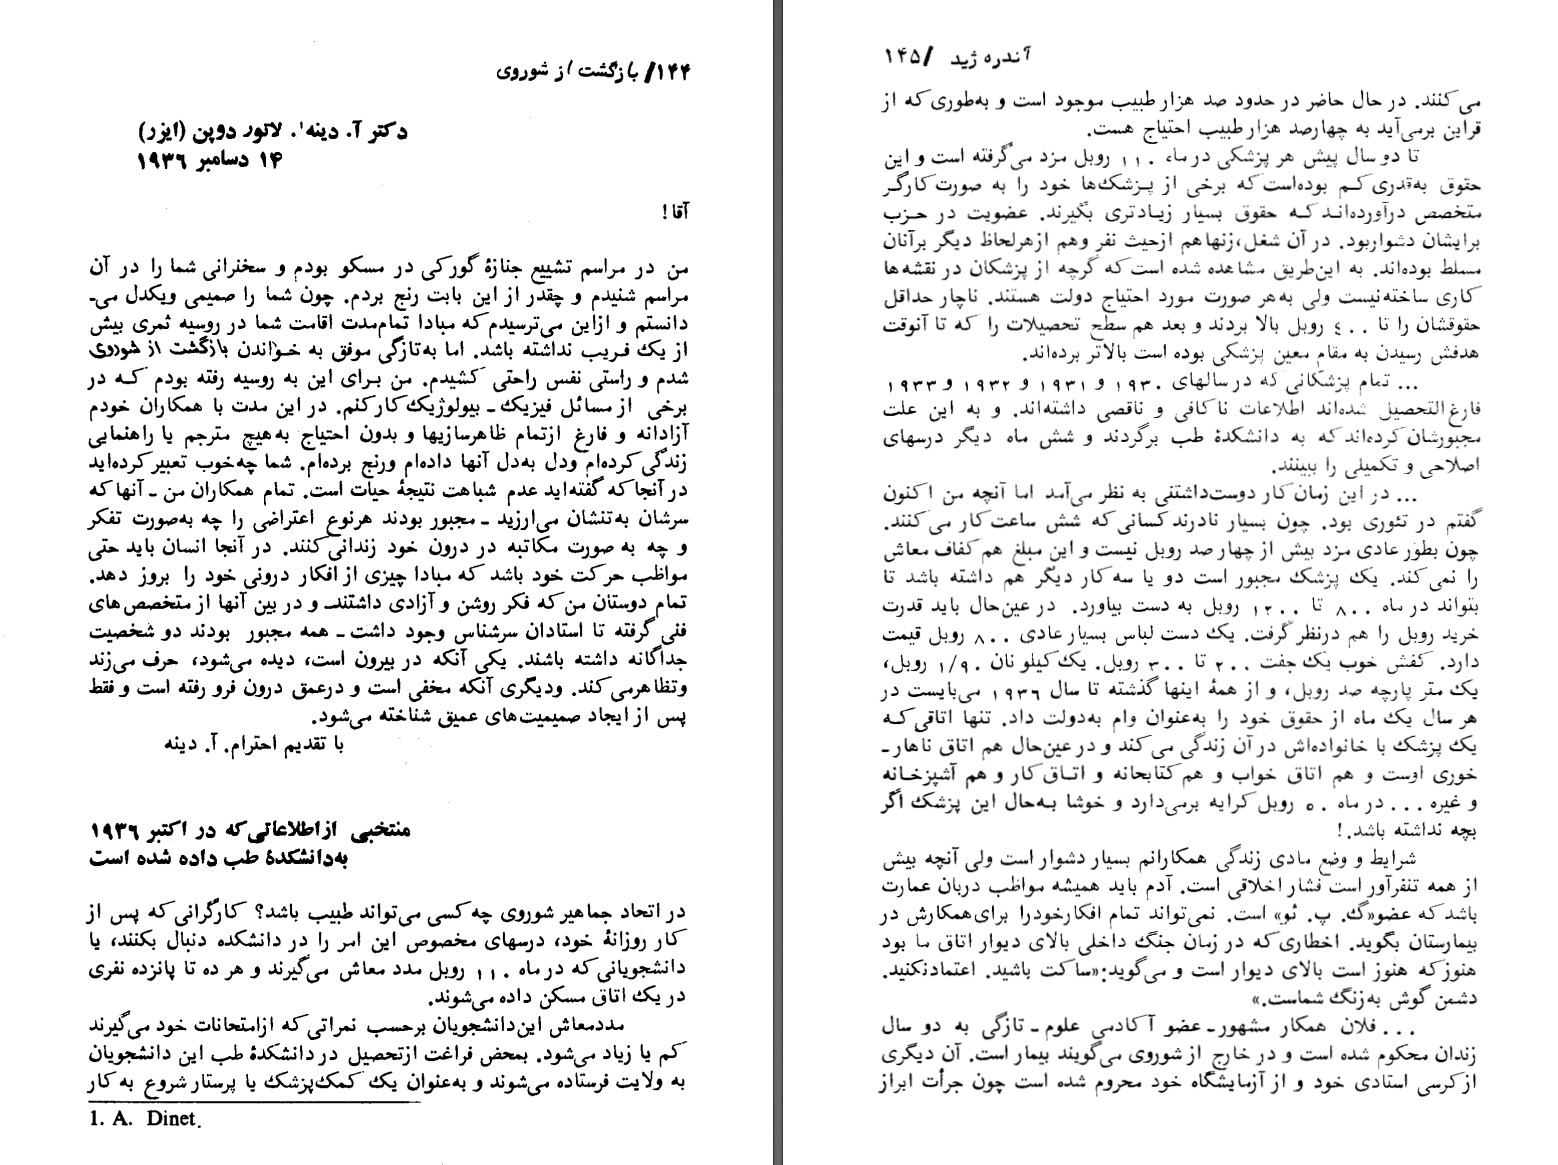 ۱۴۴/ بازگشت از شوروی
دکتر آ. دینه۱. لاتور دوپن (ایزر)
۱۴ دسامبر ۱۹۳۶
آقا!
من در مراسم تشییع جنازهٔ گورکی در مسکو بودم و سخنرانی شما را در آن
مراسم شنیدم و چقدر از این بابت رنج بردم. چون شما را صمیمی ویکدل می‌ـ
دانستم و ازاین می‌ترسیدم که مبادا تمام‌مدت اقامت شما در روسیه ثمری بیش
از یک فریب نداشته باشد. اما به‌تازگی موفق به خواندن بازگشت از شوروی
شدم و راستی نفس راحتی کشیدم. من برای این به روسیه رفته بودم که در
برخی از مسائل فیزیک ـ بیولوژیک کارکنم. در این مدت با همکاران خودم
آزادانه و فارغ ازتمام ظاهرسازیها و بدون احتیاج به‌هیچ مترجم یا راهنمایی
زندگی کرده‌ام ودل به‌دل آنها داده‌ام ورنج برده‌ام. شما چه‌خوب تعبیر کرده‌اید
در آنجا که گفته‌اید عدم شباهت نتیجهٔ حیات است. تمام همکاران من ـ آنها که
سرشان به‌تنشان می‌ارزید ـ مجبور بودند هرنوع اعتراضی را چه به‌صورت تفکر
و چه به صورت مکاتبه در درون خود زندانی‌کنند. در آنجا انسان باید حتی
مواظب حرکت خود باشد که مبادا چیزی از افکار درونی خود را بروز دهد.
تمام دوستان من که فکر روشن و آزادی داشتند ـ و در بین آنها از متخصص‌های
فنی گرفته تا استادان سرشناس وجود داشت ـ همه مجبور بودند دو شخصیت
جداگانه داشته باشند. یکی آنکه در بیرون است، دیده می‌شود، حرف می‌زند
وتظاهرمی‌کند. ودیگری آنکه مخفی است و درعمق درون فرو رفته است و فقط
پس از ایجاد صمیمیت‌های عمیق شناخته می‌شود.
با تقدیم احترام. آ. دینه
منتخبی از اطلاعاتی که در اکتبر ۱۹۳۶
به‌دانشکدهٔ طب داده شده است
در اتحاد جماهیر شوروی چه‌کسی می‌تواند طبیب باشد؟ کارگرانی که پس از
کار روزانهٔ خود، درسهای مخصوص این امر را در دانشکده دنبال بکنند، یا
دانشجویانی که در ماه ۱۱۰ روبل مدد معاش می‌گیرند و هر ده تا پانزده نفری
در یک اتاق مسکن داده می‌شوند.
مددمعاش این‌دانشجویان برحسب نمراتی که ازامتحانات خود می‌گیرند
کم یا زیاد می‌شود. بمحض فراغت ازتحصیل در دانشکدهٔ طب این دانشجویان
به ولایت فرستاده می‌شوند و به‌عنوان یک کمک‌پزشک یا پرستار شروع به کار
1. A. Dinet.
آندره ژید /۱۴۵
می‌کنند. در حال حاضر در حدود صد هزار طبیب موجود است و به‌طوری که از
قراین برمی‌آید به چهارصد هزار طبیب احتیاج هست.
تا دو سال پیش هر پزشکی در ماه ۱۱۰ روبل مزد می‌گرفته است و این
حقوق به‌قدری کم بوده‌است که برخی از پزشک‌ها خود را به صورت کارگر
متخصص درآورده‌اند که حقوق بسیار زیادتری بگیرند. عضویت در حزب
برایشان دشواربود. در آن شغل، زنها هم ازحیث نفر وهم ازهرلحاظ دیگر برآنان
مسلط بوده‌اند. به این‌طریق مشاهده شده است که گرچه از پزشکان در نقشه‌ها
کاری ساخته‌نیست ولی به‌هر صورت مورد احتیاج دولت هستند. ناچار حداقل
حقوقشان را تا ۴۰۰ روبل بالا بردند و بعد هم سطح تحصیلات را که تا آنوقت
هدفش رسیدن به مقام معین پزشکی بوده است بالاتر برده‌اند.
... تمام پزشکانی که در سالهای ۱۹۳۰ و ۱۹۳۱ و ۱۹۳۲ و ۱۹۳۳
فارغ‌التحصیل شده‌اند اطلاعات ناکافی و ناقصی داشته‌اند. و به این علت
مجبورشان کرده‌اند که به دانشکدهٔ طب برگردند و شش ماه دیگر درسهای
اصلاحی و تکمیلی را ببینند.
... در این زمان کار دوست‌داشتنی به نظر می‌آمد اما آنچه من اکنون
گفتم در تئوری بود. چون بسیار نادرند کسانی که شش ساعت کار می‌کنند.
چون بطور عادی مزد بیش از چهار صد روبل نیست و این مبلغ هم کفاف معاش
را نمی‌کند. یک پزشک مجبور است دو یا سه کار دیگر هم داشته باشد تا
بتواند در ماه ۸۰۰ تا ۱۲۰۰ روبل به دست بیاورد. در عین‌حال باید قدرت
خرید روبل را هم درنظر گرفت. یک دست لباس بسیار عادی ۸۰۰ روبل قیمت
دارد. کفش خوب یک جفت ۲۰۰ تا ۳۰۰ روبل. یک کیلو نان ۱/۹۰ روبل،
یک متر پارچه صد روبل، و از همهٔ اینها گذشته تا سال ۱۹۳۶ می‌بایست در
هر سال یک ماه از حقوق خود را به‌عنوان وام به‌دولت داد. تنها اتاقی که
یک پزشک با خانواده‌اش در آن زندگی می‌کند و در عین‌حال هم اتاق ناهارـ
خوری اوست و هم اتاق خواب و هم کتابخانه و اتاق کار و هم آشپزخانه
و غیره... در ماه ۵۰ روبل کرایه برمی‌دارد و خوشا به‌حال این پزشک اگر
بچه نداشته باشد.!
شرایط و وضع مادی زندگی همکارانم بسیار دشوار است ولی آنچه بیش
از همه تنفرآور است فشار اخلاقی است. آدم باید همیشه مواظب دربان عمارت
باشد که عضو «گ. پ. ئو» است. نمی‌تواند تمام افکارخودرا برای همکارش در
بیمارستان بگوید. اخطاری که در زمان جنگ داخلی بالای دیوار اتاق ما بود
هنوز که هنوز است بالای دیوار است و می‌گوید: «ساکت باشید. اعتمادنکنید.
دشمن گوش به‌زنگ شماست.»
... فلان همکار مشهور ـ عضو آکادمی علوم ـ تازگی به دو سال
زندان محکوم شده است و در خارج از شوروی می‌گویند بیمار است. آن دیگری
از کرسی استادی خود و از آزمایشگاه خود محروم شده است چون جرأت ابراز